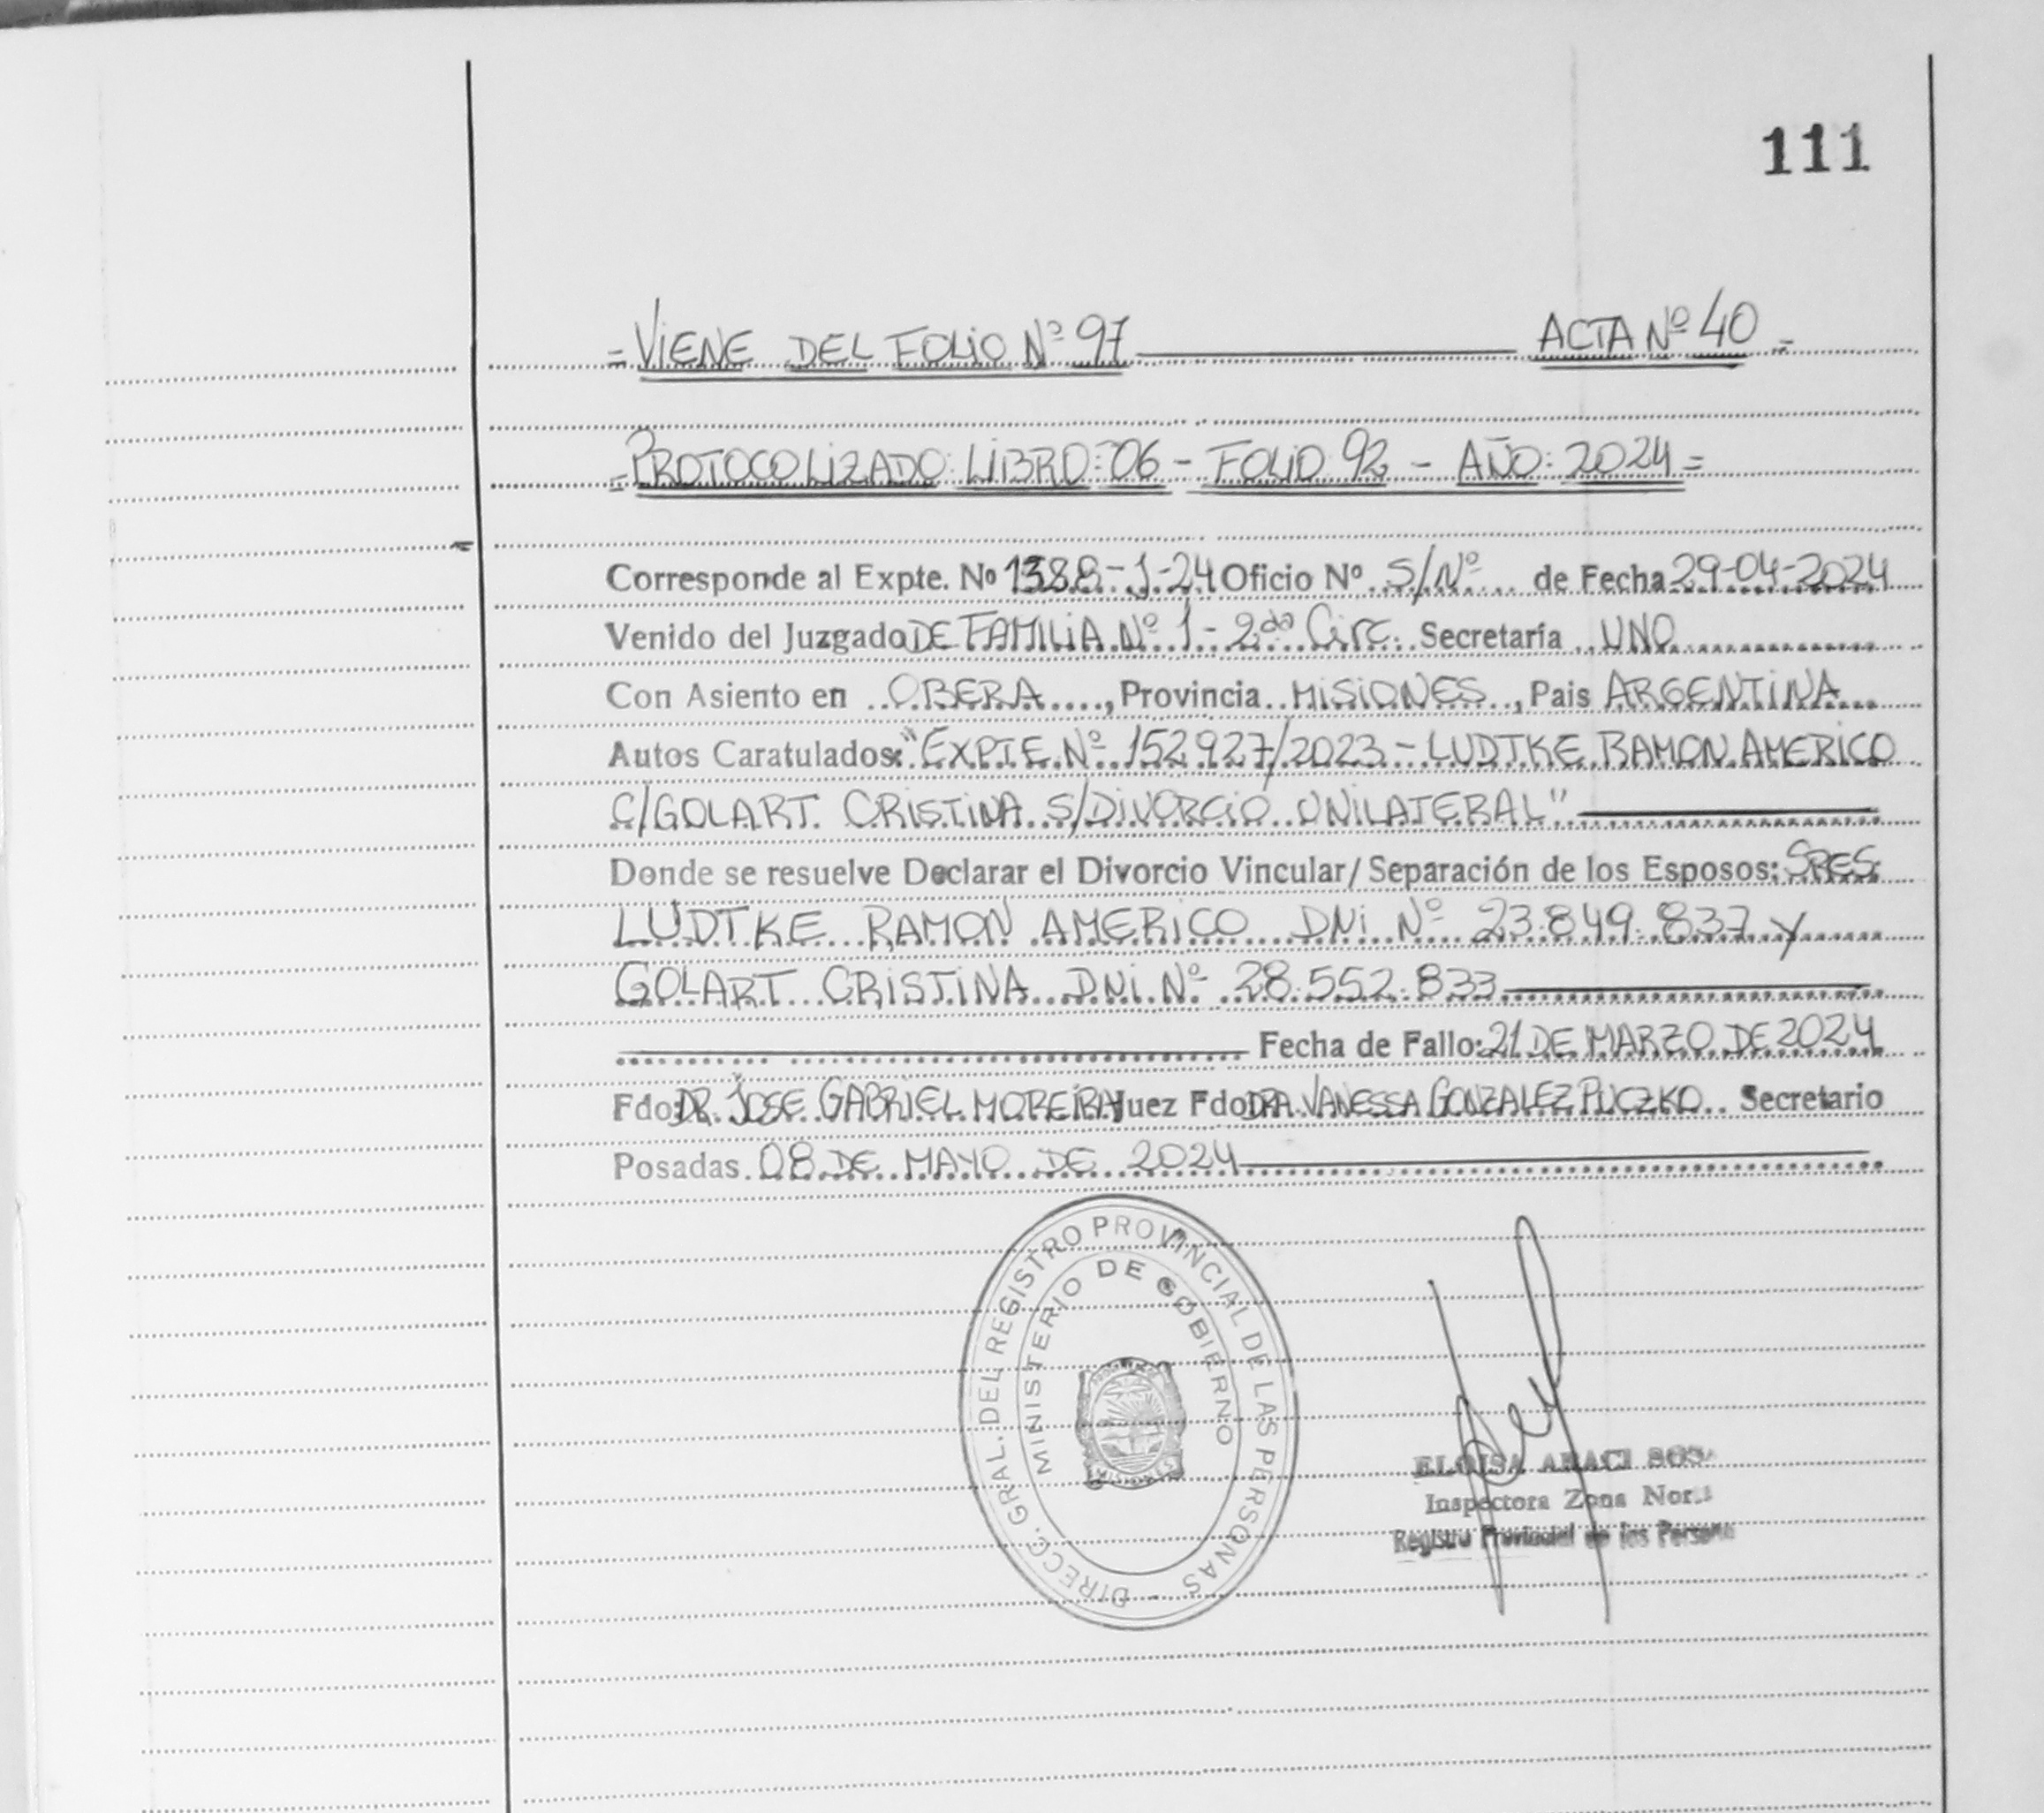 111
= VIENE DEL FOLIO Nº 97 ACTA Nº 40 =
= PROTOCOLIZADO: LIBRO: 06 - FOLIO 92 - AÑO: 2024 =
Corresponde al Expte. Nº 1388-J-24 Oficio Nº S/Nº de Fecha 29-04-2024
Venido del Juzgado DE FAMILIA Nº 1 - 2da Circ. Secretaría UNO
Con Asiento en OBERA, Provincia MISIONES, Pais ARGENTINA
Autos Caratulados: "EXPTE. Nº 152927/2023 - LUDTKE RAMON AMERICO
C/GOLART CRISTINA S/DIVORCIO UNILATERAL"
Donde se resuelve Declarar el Divorcio Vincular/Separación de los Esposos: SRES:
LUDTKE RAMON AMERICO DNI Nº 23.849.837 y
GOLART CRISTINA DNI Nº 28.552.833
Fecha de Fallo: 21 DE MARZO DE 2024
Fdo: DR. JOSE GABRIEL MOREIRA Juez Fdo: DRA. VANESSA GONZALEZ PUCZKO Secretario
Posadas 08 DE MAYO DE 2024
DIRECC. GRAL. DEL REGISTRO PROVINCIAL DE LAS PERSONAS -
MINISTERIO DE GOBIERNO
MISIONES
ELOISA ARACI SOSA
Inspectora Zona Norte
Registro Provincial de las Personas